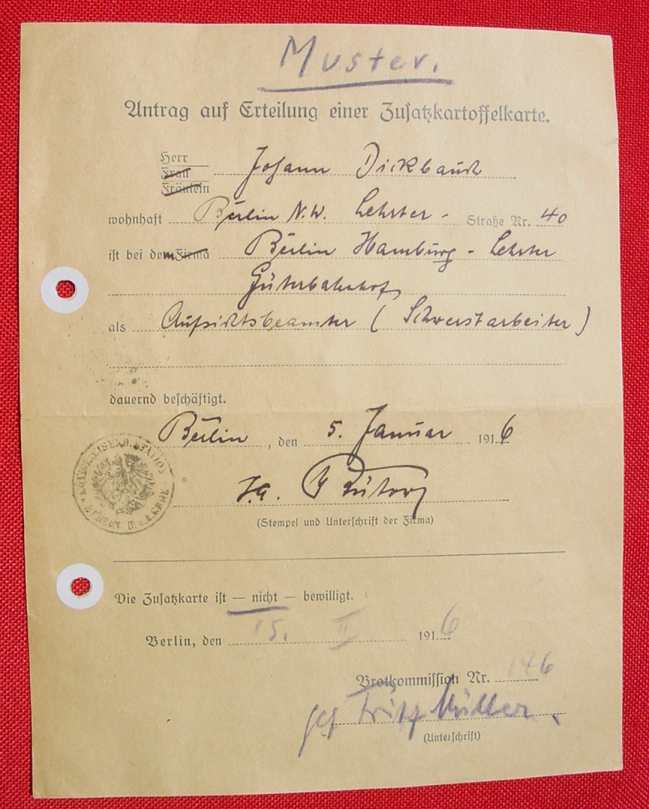 Muster.
Antrag auf Erteilung einer Zusatzkartoffelkarte.
Herr
Frau
Fräulein
Johann Dickbauch
wohnhaft Berlin N.W. Lehrter- Straße Nr. 40
ist bei dem Firma Berlin Hamburg-Lehrter
Güterbahnhof
als Aufsichtsbeamter (Schwerstarbeiter)
dauernd beschäftigt.
Berlin, den 5. Januar 1916
I.A.
(Stempel und Unterschrift der Firma)
Die Zusatzkarte ist — nicht — bewilligt.
Berlin, den 15. II 1916
Brotkommission Nr. 146
gez Fritz Müller.
(Unterschrift)